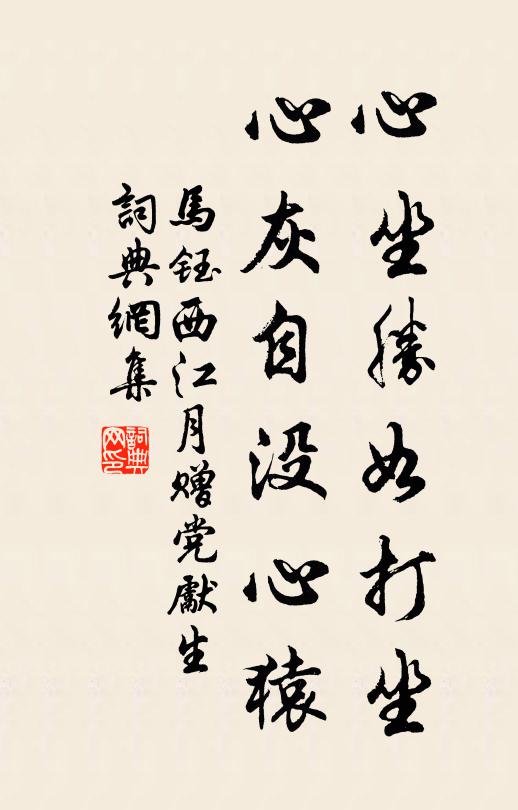 心坐勝如打坐
心灰自没心猿
馬鈺西江月贈党獻生
詞典網集
詞典网印